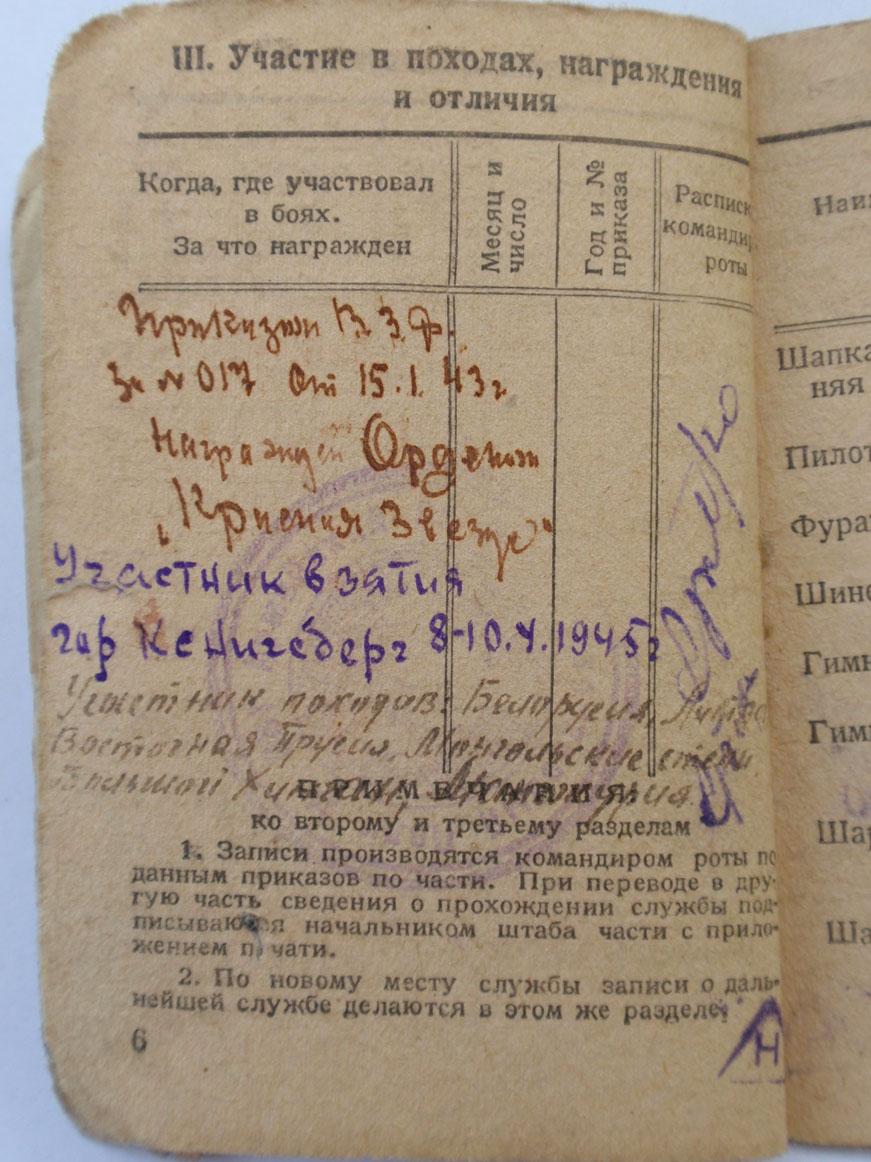 III. Участие в походах, награждения
и отличия
Когда, где участвовал
в боях.
За что награжден
Месяц и
число
Год и №
приказа
Расписк
командир
роты
Приказом В З Ф.
За № 017 от 15.1.43г
награжден Орденом
„Красная Звезда"
Участник взятия
гор Кенигсберг 8-10.4.1945г
Участник походов: Белорусия,
Восточная Прусия, Монгольские степи
Большой Хинган, Манчжурия.
ПРИМЕЧАНИЯ:
ко второму и третьему разделам
1. Записи производятся командиром роты по
данным приказов по части. При переводе в дру-
гую часть сведения о прохождении службы под-
писываются начальником штаба части с прило-
жением печати.
2. По новому месту службы записи о даль-
нейшей службе делаются в этом же разделе.
6
Н
Наи
Шапка
няя
Пилот
Фура
Шине
Гимн
Гим
Шар
Ша